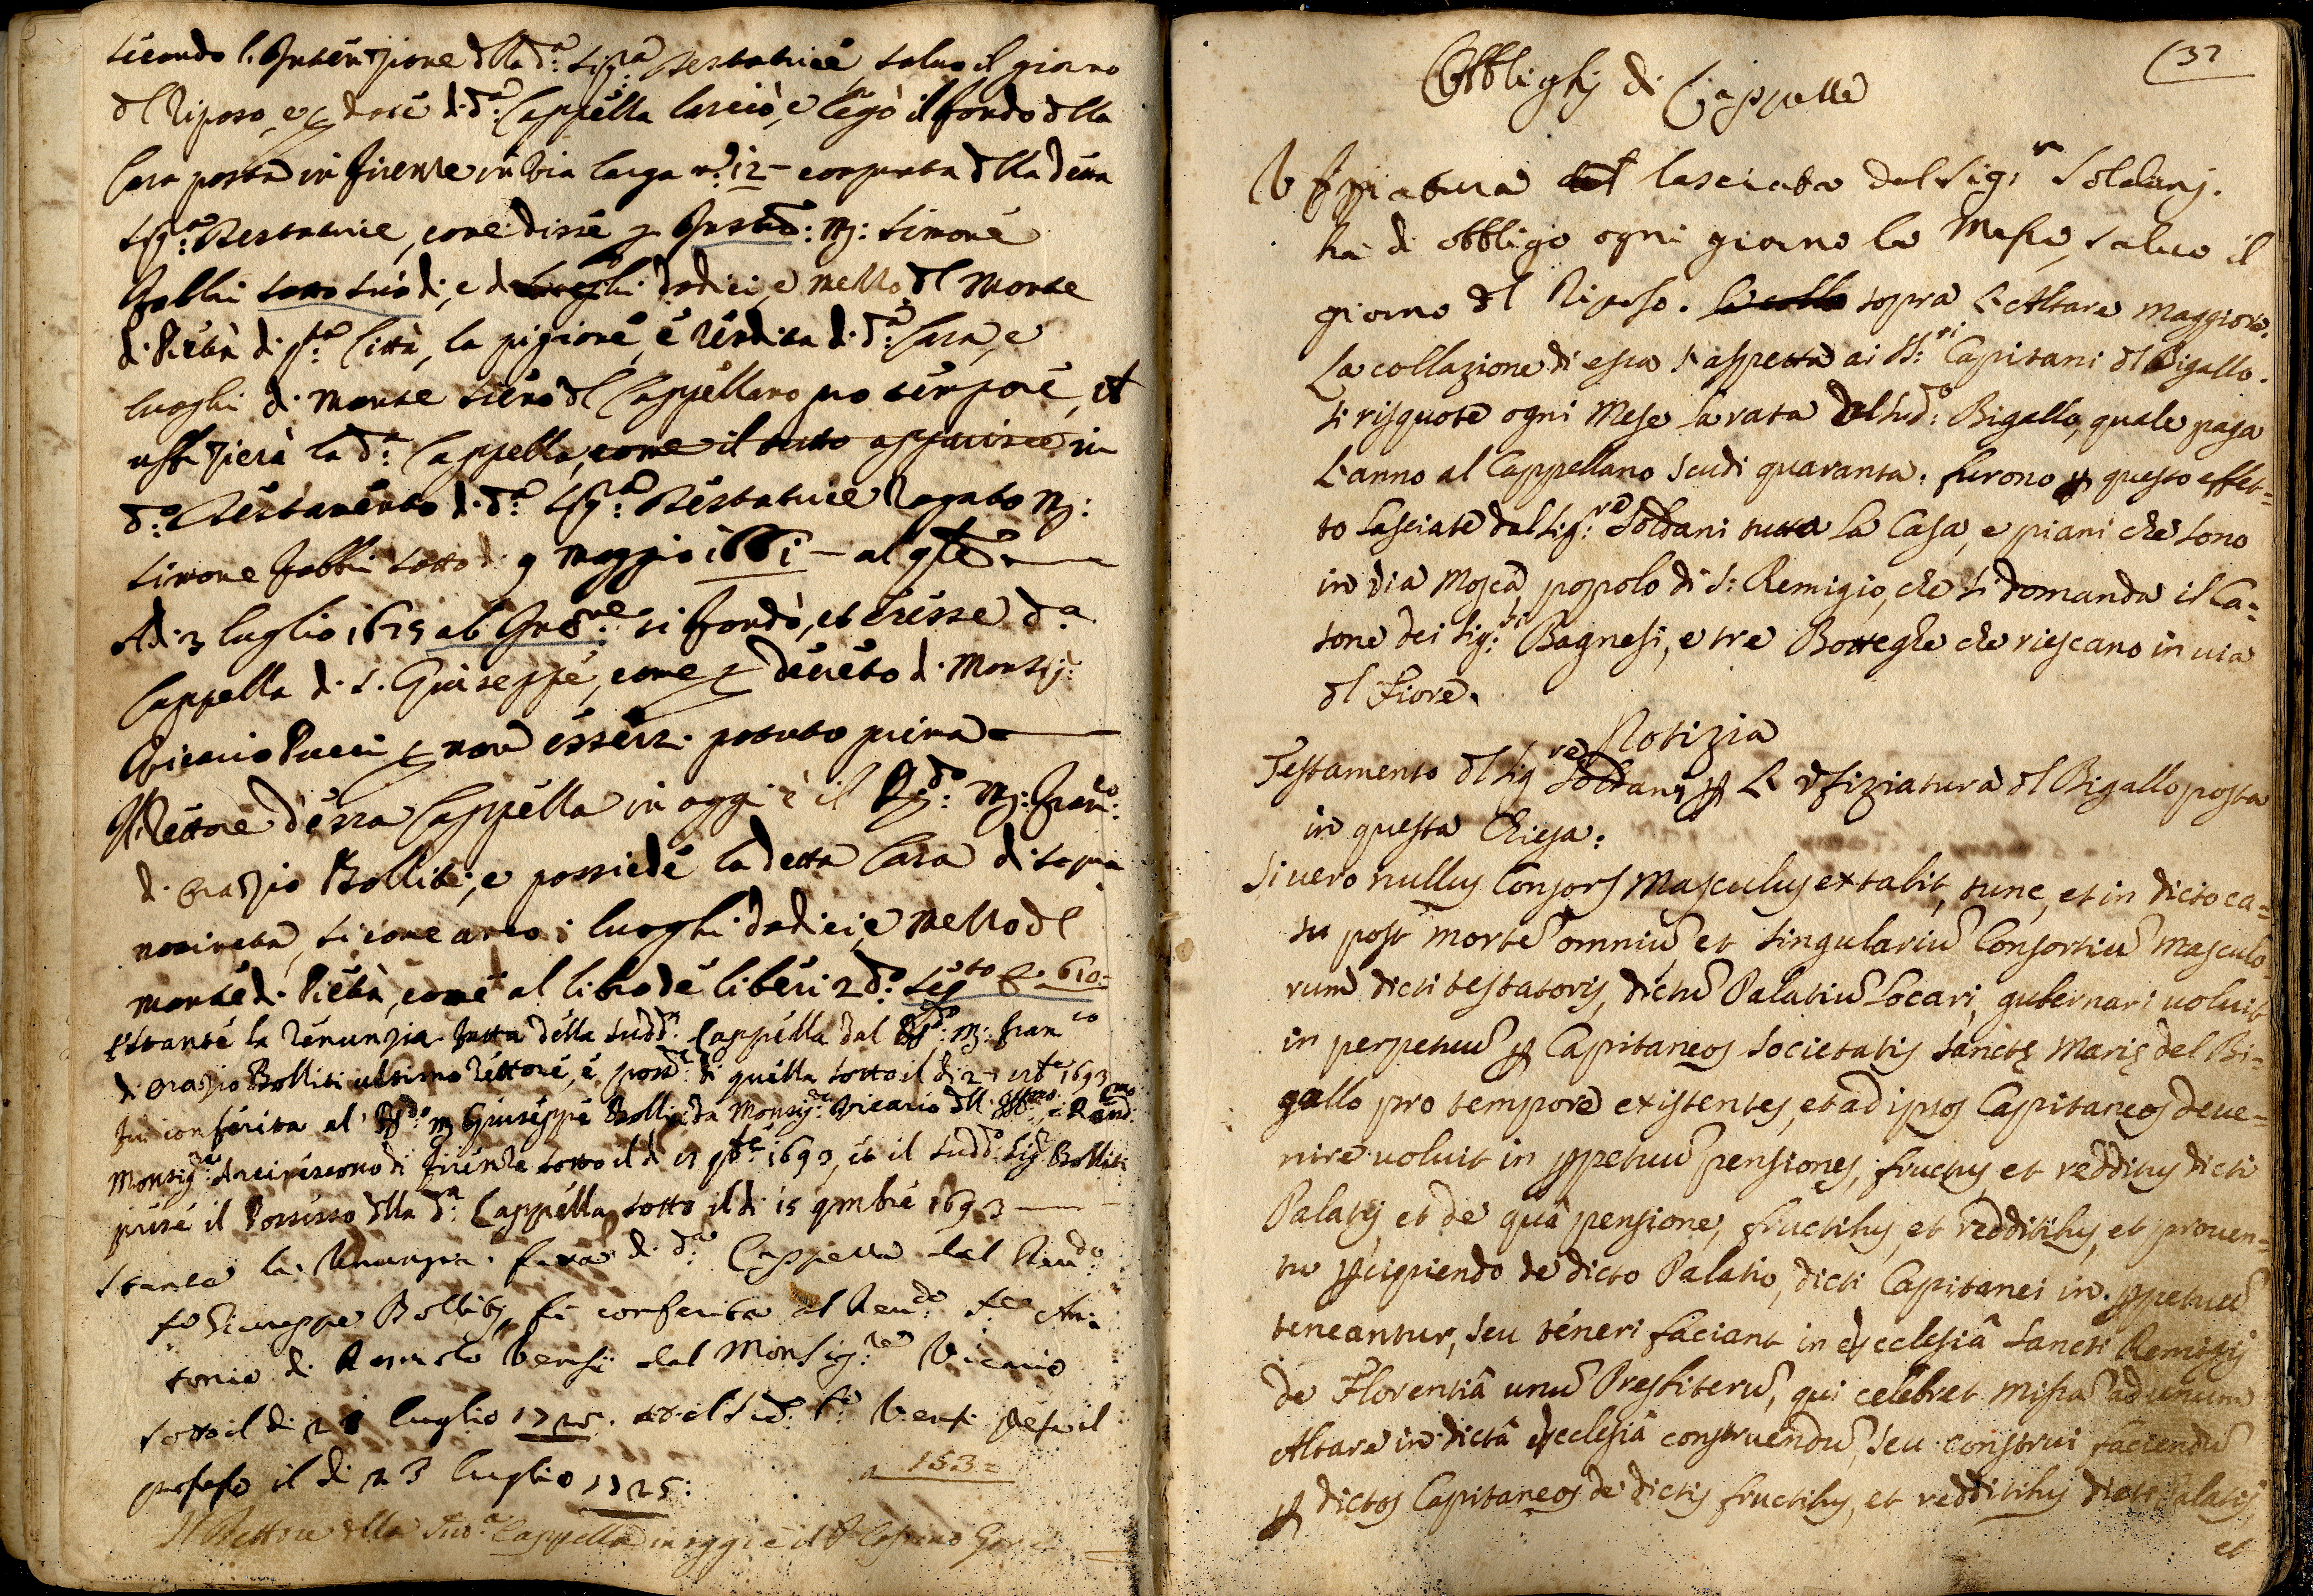 secondo l'Intenzione dlla d.a Sig.ra Testatrice, salvo il giorno
dl Riposo, e p dote d. d.a Cappella lasciò, e legò il fondo dlla
Casa posta in Firenze in Via larga n.o 12 - comprata dlla d.a
Sig.ra Testatrice, come disse p : M: Simone
Fabbri sotto suo dì, e luoghi dodici, e mezzo dl Monte
d. Pietà d. q.ta Città, la pigione, e rendita d. d.a Casa, e
luoghi d. Monte sieno dl Cappellano pro tempore, et
uffizierà la d.a Cappella, come il tutto apparisce in
d.o Testamento d. d.a Sig.ra Testatrice Rogato M:
Simone Fabbri sotto dì 9 Maggio 1661 - al q.te
Adì 3 luglio 1675 ab Inc.ne si fondò, et eresse d.a
Cappella d. S. Giuseppe, come p decreto d. Monsig.
Vicario Pucci p non essersi potuto prima
Il Rettore d'essa Cappella in oggi è il R.do M: Fran.o
d. Orazio Bolliti, e possiede la detta Casa di sopra
nominata, sicome anco i luoghi dodici, e mezzo dl
Monte d. Pietà, come al libro de liberi 2.do seg.to C. 610=
Estante la renunzia fatta della sudd.a Cappella dal R.do M: Fran.co
d. Orazio Bolliti ultimo rettore, e poss.re di quella sotto il dì 27 1693
fu conferita al R.do M Giuseppe Bolliti da Monsig.re Vicario dll Ill.mo e R.mo
Monsig.re Arcivescovo di Firenze sotto il dì 1693, et il sudd.o Sig.r Bolliti
prese il Possesso dlla d.a Cappella sotto il dì 15 9mbre 1693
Stante la Renunzia fatta d. d.a Cappella dal Reu.do
Giuseppe Bolliti, fù conferita al Reu.do An-
tonio di dal Monsig.re Vicario
sotto il dì 21 luglio 1725. et il Sud.o prese il
possesso il dì 23 luglio 1725:
a 153=
Il Rettore dlla Sud.a Cappella in oggi è il
(37
Obblighi di Cappelle
Vfiziatura lasciata dal Sig.r Soldani.
ha di obbligo ogni giorno la Messa, salvo il
giorno dl Riposo. sopra L'Altare Maggiore.
La collazione di essa s'aspetta ai SS.ri Capitani dl Bigallo.
si risquote ogni Mese la rata dal Sud.o Bigallo, quale paga
L'anno al Cappellano Scudi quaranta. furono p questo effet=
to lasciate dal Sig.re Soldani tutta la Casa, e piani che sono
in via Mosca, popolo di S: Remigio, che si domanda il Ca=
sone dei Sig.ri Bagnesi, e tre Botteghe che riescano in via
dl Fiore.
Notizia
Testamento dl Sig.re Soldani p L'Vfiziatura dl Bigallo posta
in questa Chiesa:
Si uero nullus Consors Masculus extabit, tunc, et in dicto ca=
su post mortẽ omniũ, et singulariũ Consortiũ Masculo=
rum dicti testatoris, dictũ Palatiũ locari, gubernari uoluit
in perpetuũ p Capitaneos Societatis Sanctę Marię del Bi=
gallo pro tempore existentes, et ad ipsos Capitaneos deue=
nire uoluit in ppetuũ pensiones, fructus et redditus dicti
Palatij, et de quâ pensione, fructibus, et redditibus, et prouen=
tu pcipiendo de dicto Palatio, dicti Capitanei in ppetuũ
teneantur, seu teneri faciant in ecclesiâ Sancti Remigij
de Florentiâ unũ Presbiterũ, qui celebret missã ad unum
Altare in dictâ ecclesiâ construendũ, seu construi faciendũ
p dictos Capitaneos de dictis fructibus, et redditibus dicti Palatij,
et